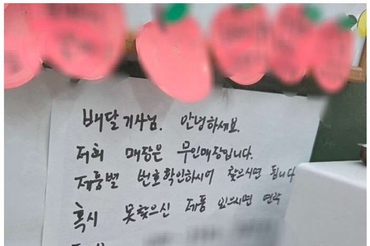 배달기사님. 안녕하세요.
저희 매장은 무인매장입니다.
제품별 번호확인하시어 찾으시면 됩니다
혹시 못찾으신 제품 있으시면 연락